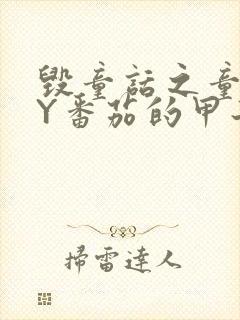 毀童話之童
Y番茄的甲
掃雷達人